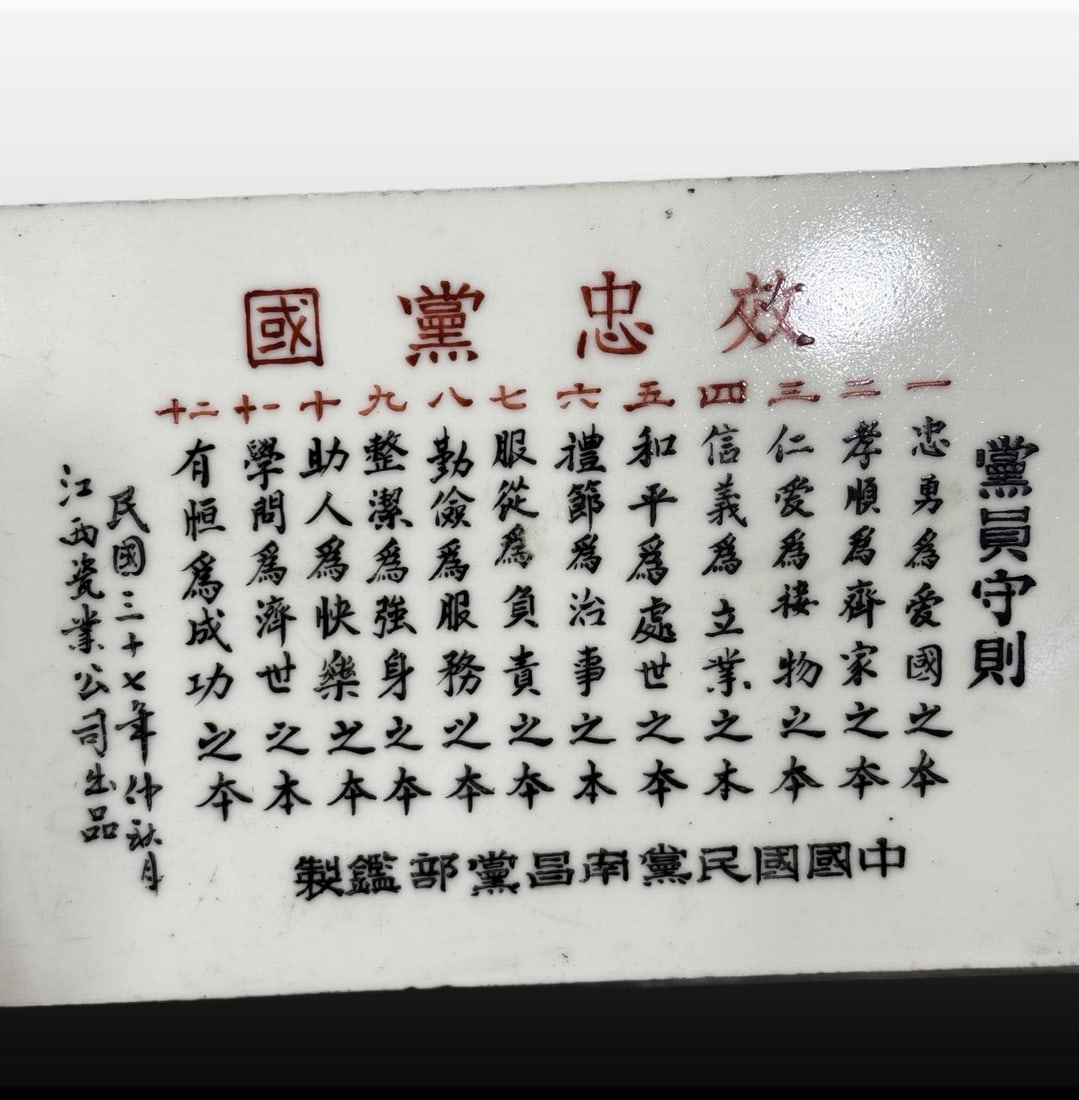 效忠黨國
黨員守則
一 忠勇爲愛國之本
二 孝順爲齊家之本
三 仁愛爲接物之本
四 信義爲立業之本
五 和平爲處世之本
六 禮節爲治事之本
七 服從爲負責之本
八 勤儉爲服務之本
九 整潔爲強身之本
十 助人爲快樂之本
十一 學問爲濟世之本
十二 有恒爲成功之本
中國國民黨南昌黨部鑑製
民國三十七年仲秋月
江西瓷業公司出品